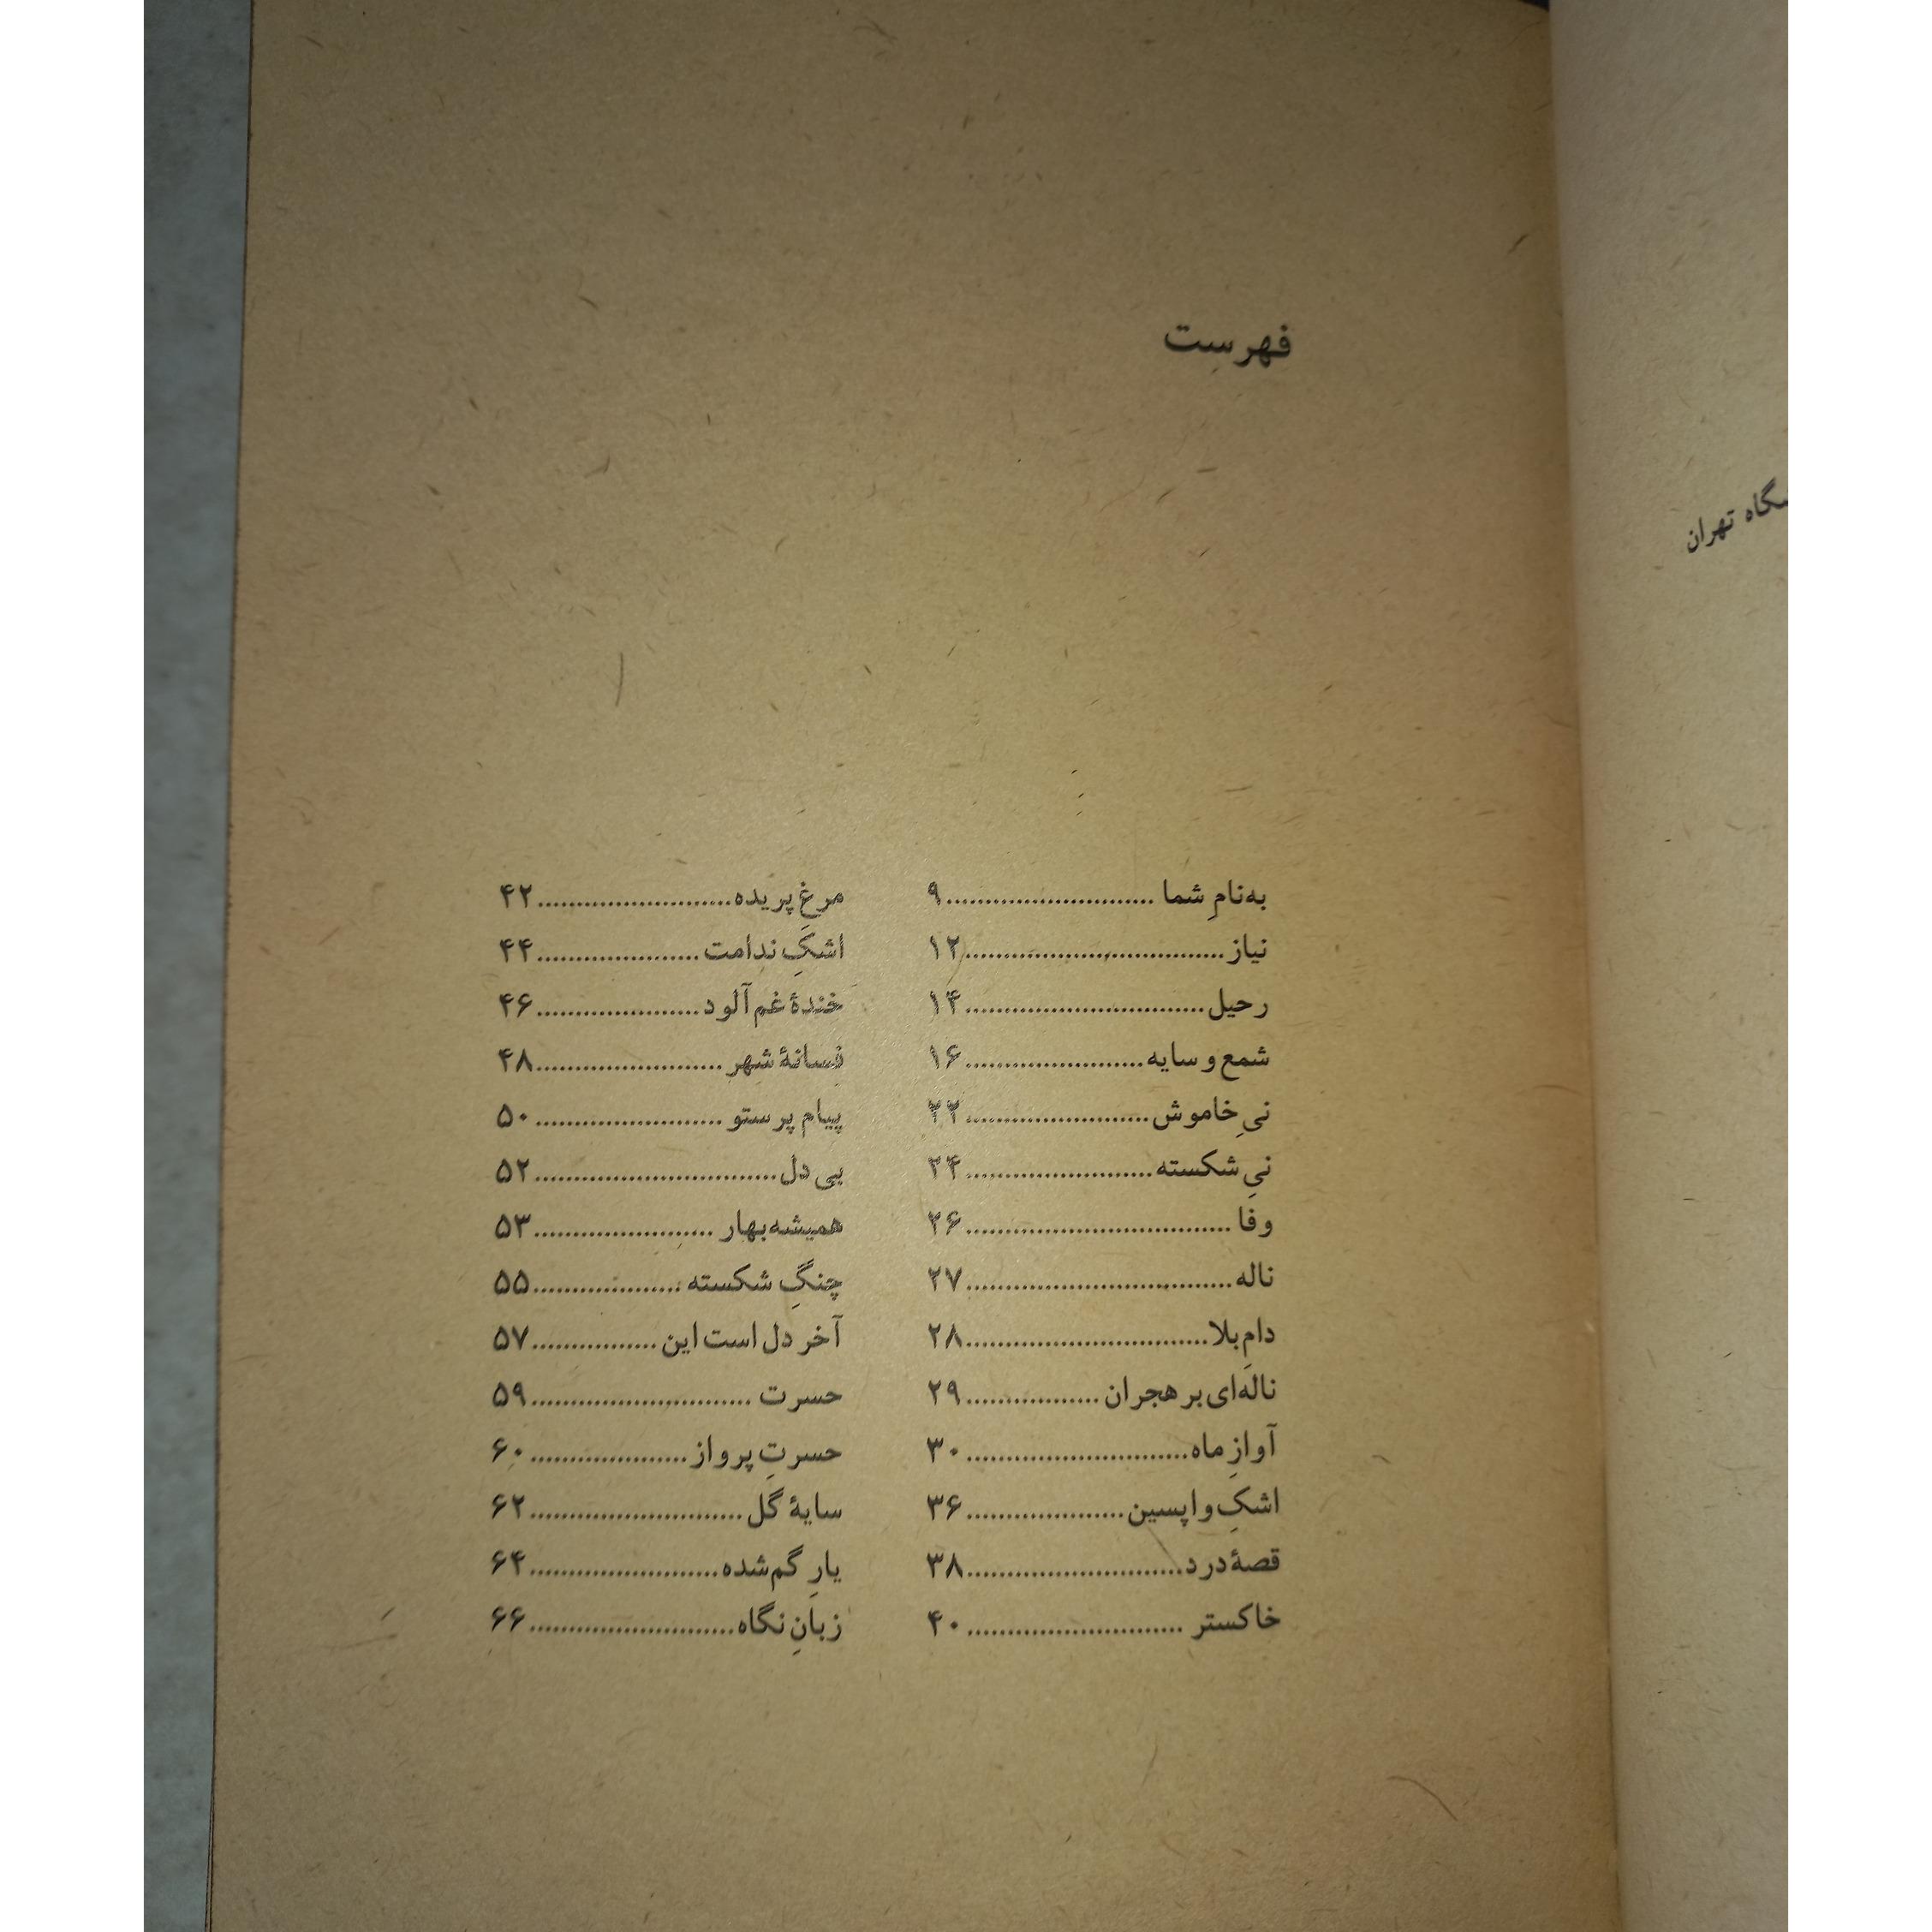 فهرست
به‌نامِ شما ..........................۹
نیاز.................................۱۲
رحیل..............................۱۴
شمع و سایه.......................۱۶
نیِ خاموش.......................۲۲
نیِ شکسته........................۲۴
وفا ..................................۲۶
ناله..................................۲۷
دامِ بلا...............................۲۸
ناله‌ای بر هجران .................۲۹
آوازِ ماه............................۳۰
اشکِ واپسین....................۳۶
قصهٔ درد...........................۳۸
خاکستر ...........................۴۰
مرغِ پریده.........................۴۲
اشکِ ندامت.....................۴۴
خندهٔ غم‌آلود.....................۴۶
فسانهٔ شهر ........................۴۸
پیام پرستو ........................۵۰
بی‌دل...............................۵۲
همیشه بهار .......................۵۳
چنگِ شکسته ...................۵۵
آخر دل است این ................۵۷
حسرت ............................۵۹
حسرتِ پرواز....................۶۰
سایهٔ گل...........................۶۲
یارِ گم‌شده........................۶۴
زبانِ نگاه..........................۶۶
تهران